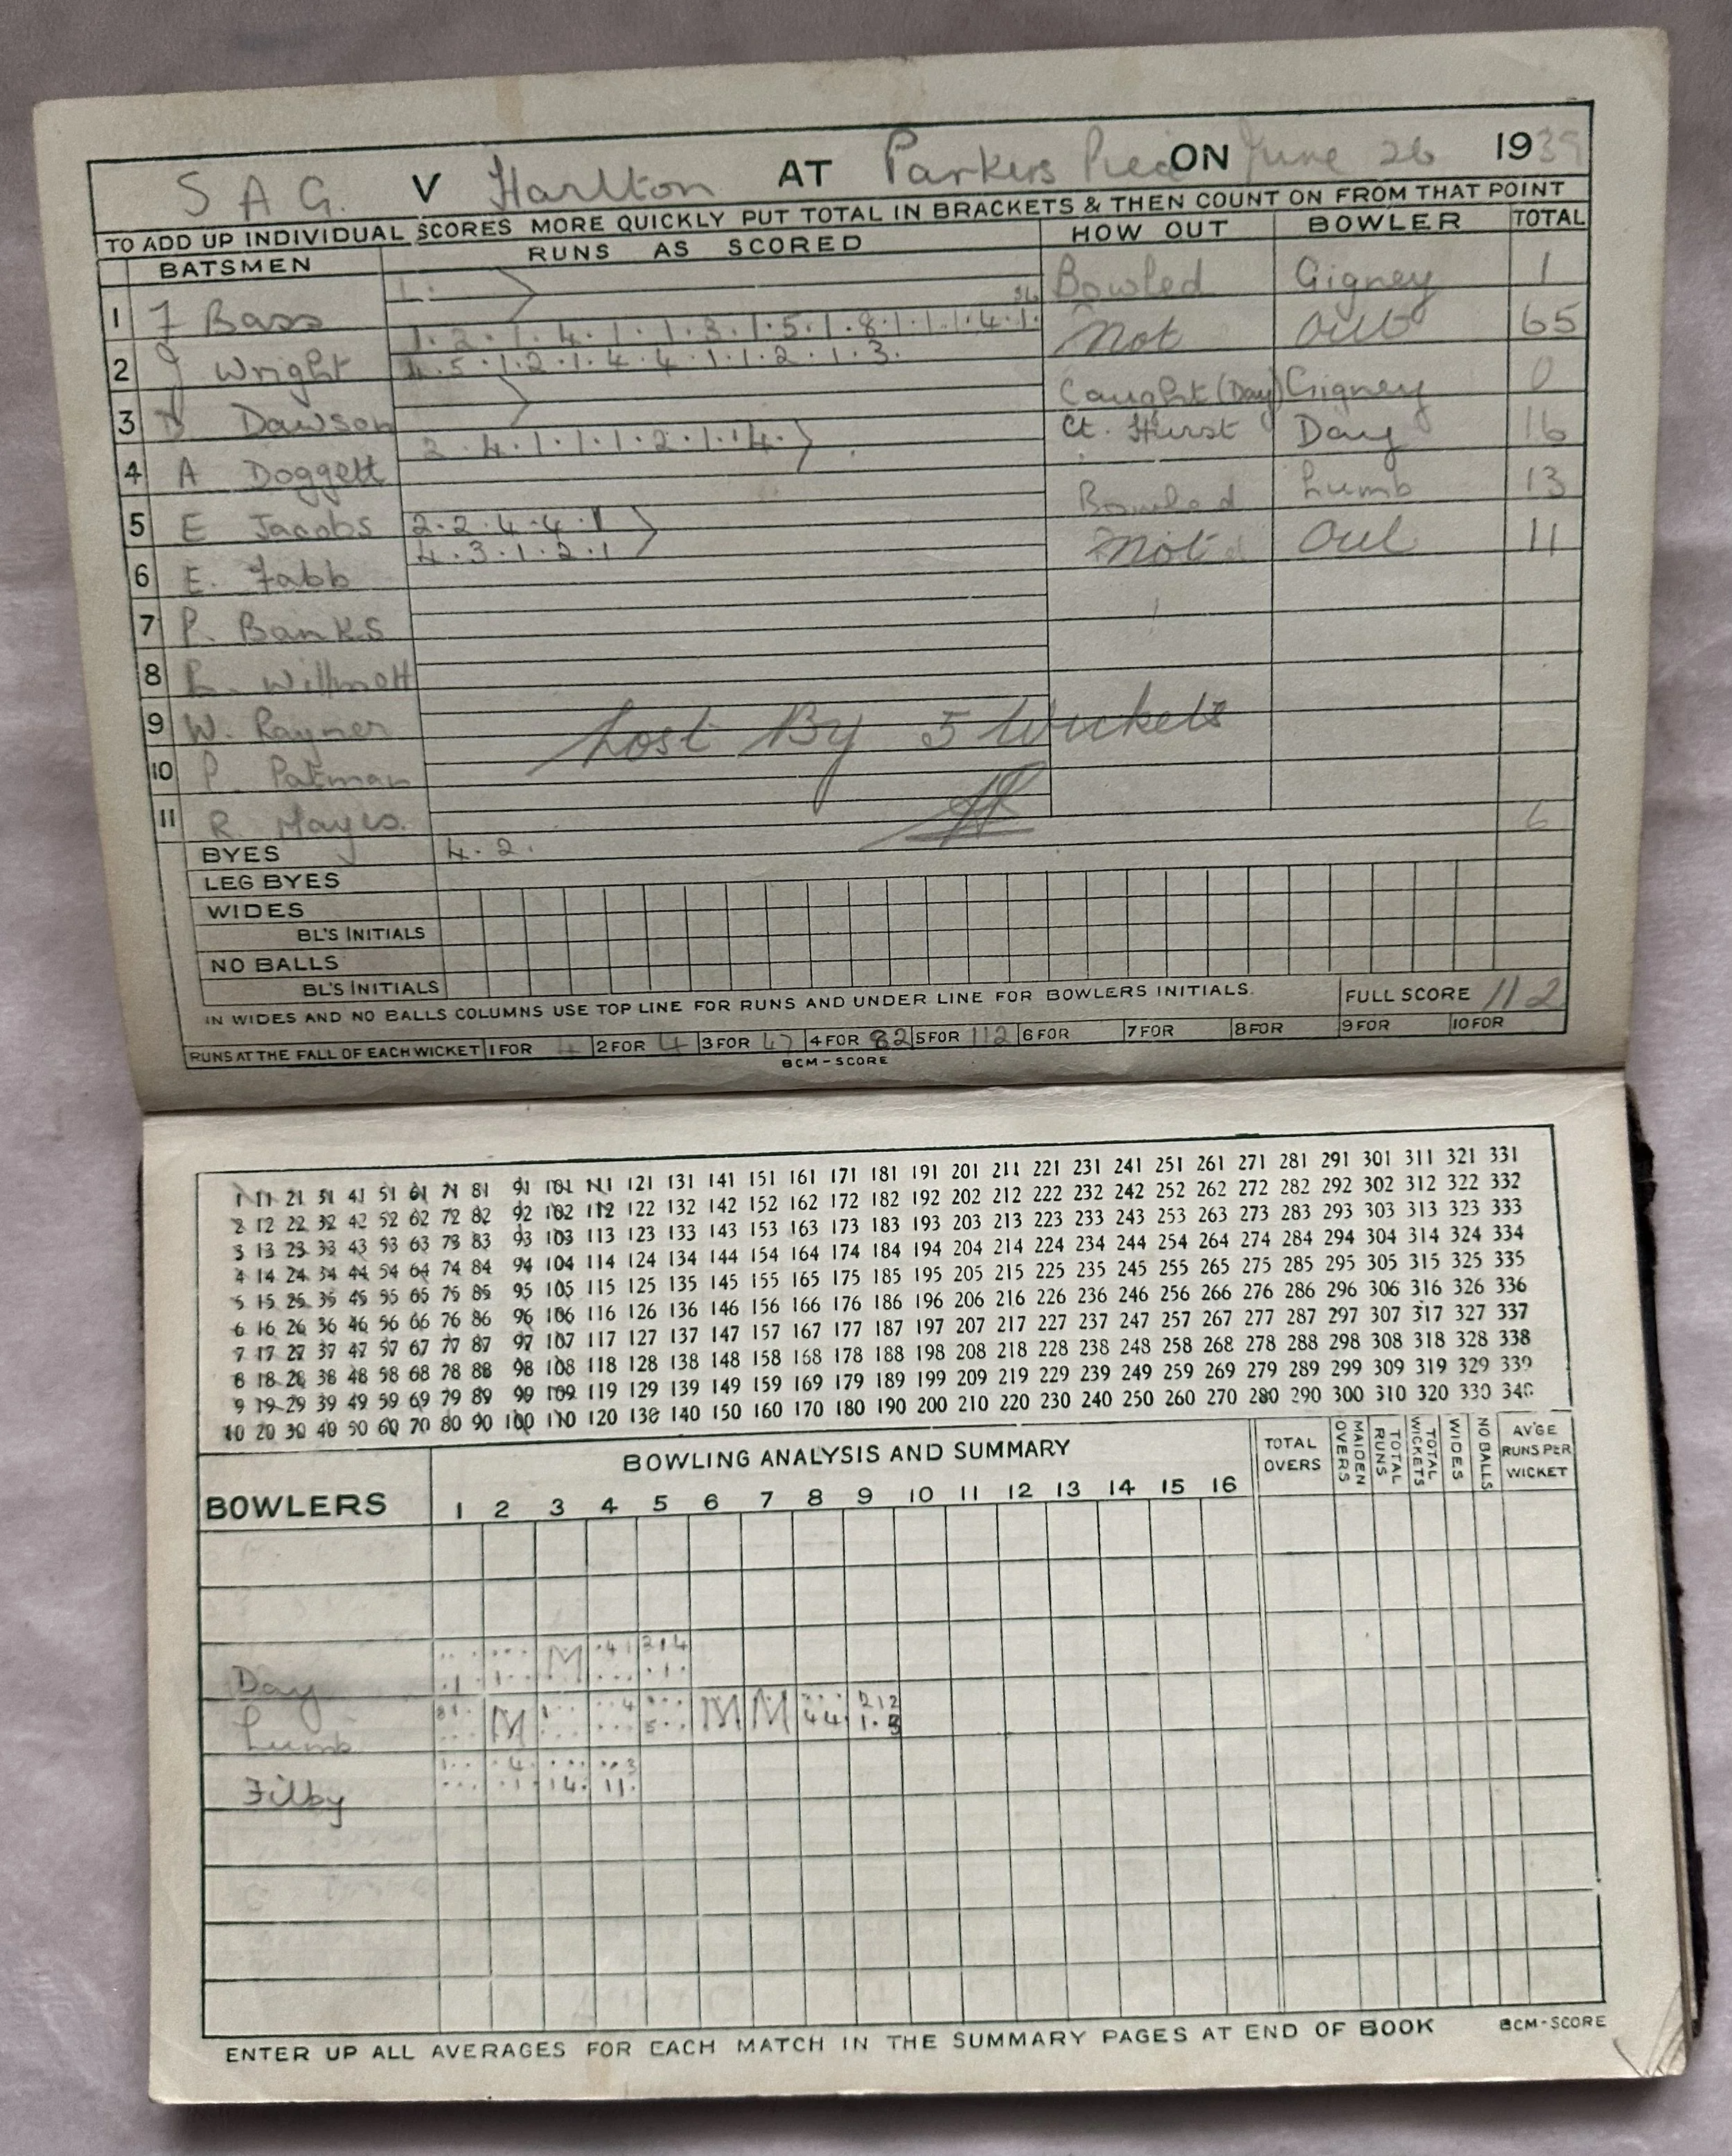 S A G. V Harlton AT Parkers Piece ON June 26 1939
TO ADD UP INDIVIDUAL SCORES MORE QUICKLY PUT TOTAL IN BRACKETS & THEN COUNT ON FROM THAT POINT
BATSMEN RUNS AS SCORED HOW OUT BOWLER TOTAL
1 F Bass 1. Bowled Gigney 1
2 J Wright 1.2.1.4.1.1.3.1.5.1.8.1.1.1.4.1. Not Out 65
4.5.1.2.1.4.4.1.1.2.1.3.
3 D Dawson Caught (Day) Gigney 0
4 A Doggett 2.4.1.1.1.2.1.4. Ct. Hurst Day 16
5 E Jacobs 2.2.4.4.1 Bowled Lumb 13
6 E. Fabb 4.3.1.2.1 Not Out 11
7 P. Banks
8 L. Willmott
9 W. Rayner
10 P. Patman
11 R. Hayes.
Lost By 5 Wickets
BYES 4.2. 6
LEG BYES
WIDES
BL'S INITIALS
NO BALLS
BL'S INITIALS
IN WIDES AND NO BALLS COLUMNS USE TOP LINE FOR RUNS AND UNDER LINE FOR BOWLERS INITIALS. FULL SCORE 112
RUNS AT THE FALL OF EACH WICKET 1 FOR 4 2 FOR 4 3 FOR 47 4 FOR 82 5 FOR 112 6 FOR 7 FOR 8 FOR 9 FOR 10 FOR
BCM-SCORE
1 11 21 31 41 51 61 71 81 91 101 111 121 131 141 151 161 171 181 191 201 211 221 231 241 251 261 271 281 291 301 311 321 331
2 12 22 32 42 52 62 72 82 92 102 112 122 132 142 152 162 172 182 192 202 212 222 232 242 252 262 272 282 292 302 312 322 332
3 13 23 33 43 53 63 73 83 93 103 113 123 133 143 153 163 173 183 193 203 213 223 233 243 253 263 273 283 293 303 313 323 333
4 14 24 34 44 54 64 74 84 94 104 114 124 134 144 154 164 174 184 194 204 214 224 234 244 254 264 274 284 294 304 314 324 334
5 15 25 35 45 55 65 75 85 95 105 115 125 135 145 155 165 175 185 195 205 215 225 235 245 255 265 275 285 295 305 315 325 335
6 16 26 36 46 56 66 76 86 96 106 116 126 136 146 156 166 176 186 196 206 216 226 236 246 256 266 276 286 296 306 316 326 336
7 17 27 37 47 57 67 77 87 97 107 117 127 137 147 157 167 177 187 197 207 217 227 237 247 257 267 277 287 297 307 317 327 337
8 18 28 38 48 58 68 78 88 98 108 118 128 138 148 158 168 178 188 198 208 218 228 238 248 258 268 278 288 298 308 318 328 338
9 19 29 39 49 59 69 79 89 99 109 119 129 139 149 159 169 179 189 199 209 219 229 239 249 259 269 279 289 299 309 319 329 339
10 20 30 40 50 60 70 80 90 100 110 120 130 140 150 160 170 180 190 200 210 220 230 240 250 260 270 280 290 300 310 320 330 340
BOWLING ANALYSIS AND SUMMARY
BOWLERS 1 2 3 4 5 6 7 8 9 10 11 12 13 14 15 16 TOTAL OVERS MAIDEN OVERS TOTAL RUNS TOTAL WICKETS WIDES NO BALLS AV'GE RUNS PER WICKET
Day M
Lumb M M M
Filby
ENTER UP ALL AVERAGES FOR EACH MATCH IN THE SUMMARY PAGES AT END OF BOOK BCM-SCORE